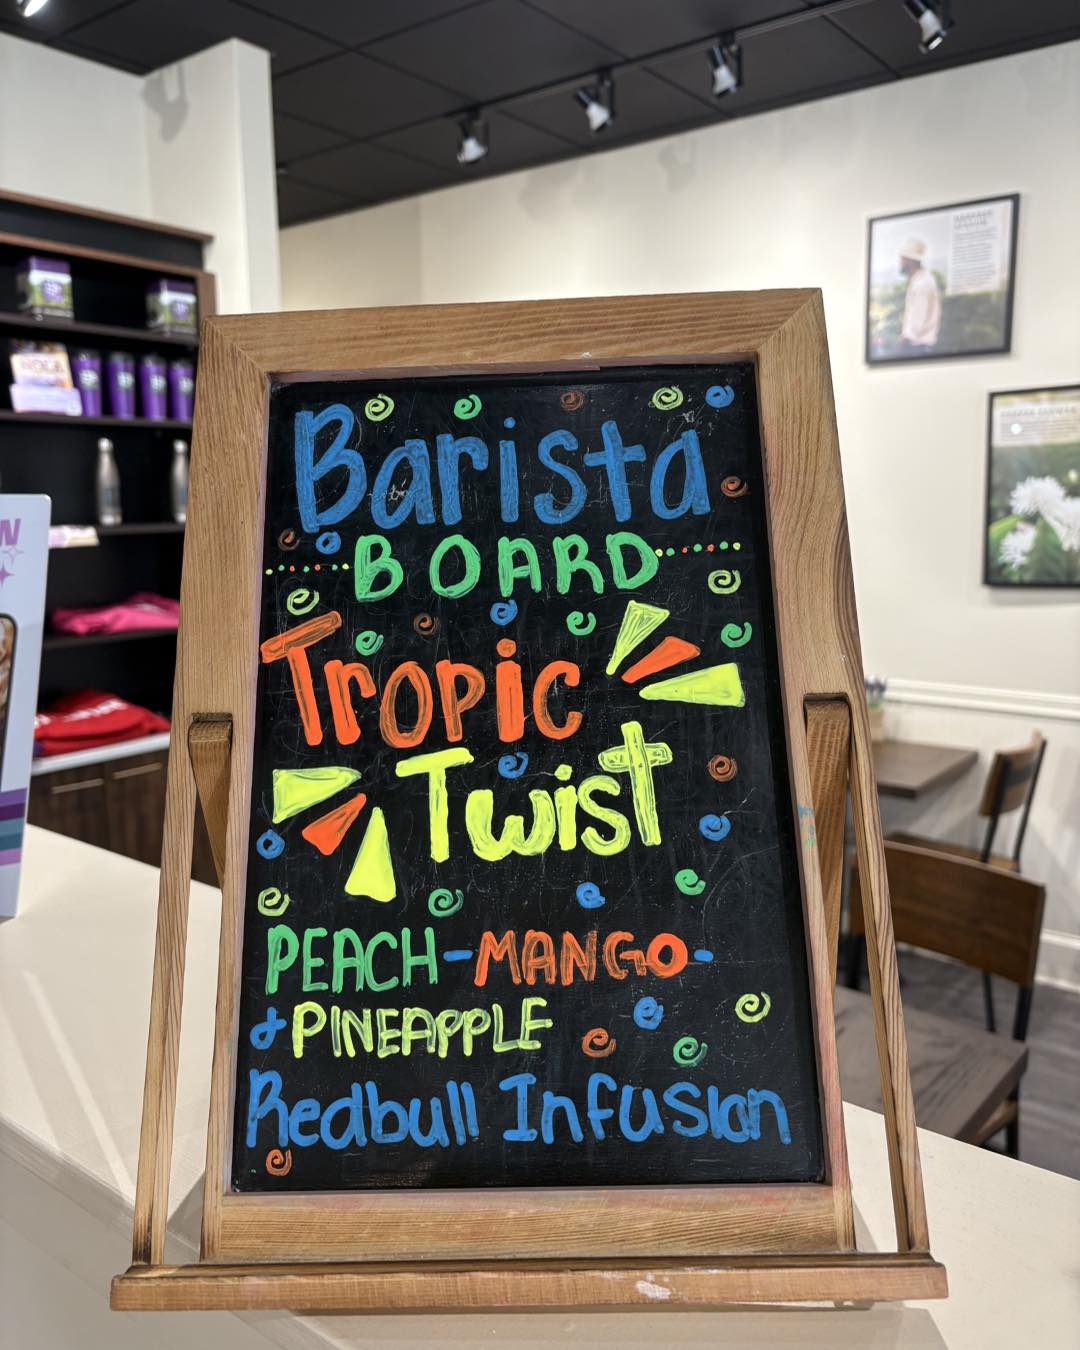 Barista
BOARD
Tropic
Twist
PEACH-MANGO-
& PINEAPPLE
Redbull Infusion